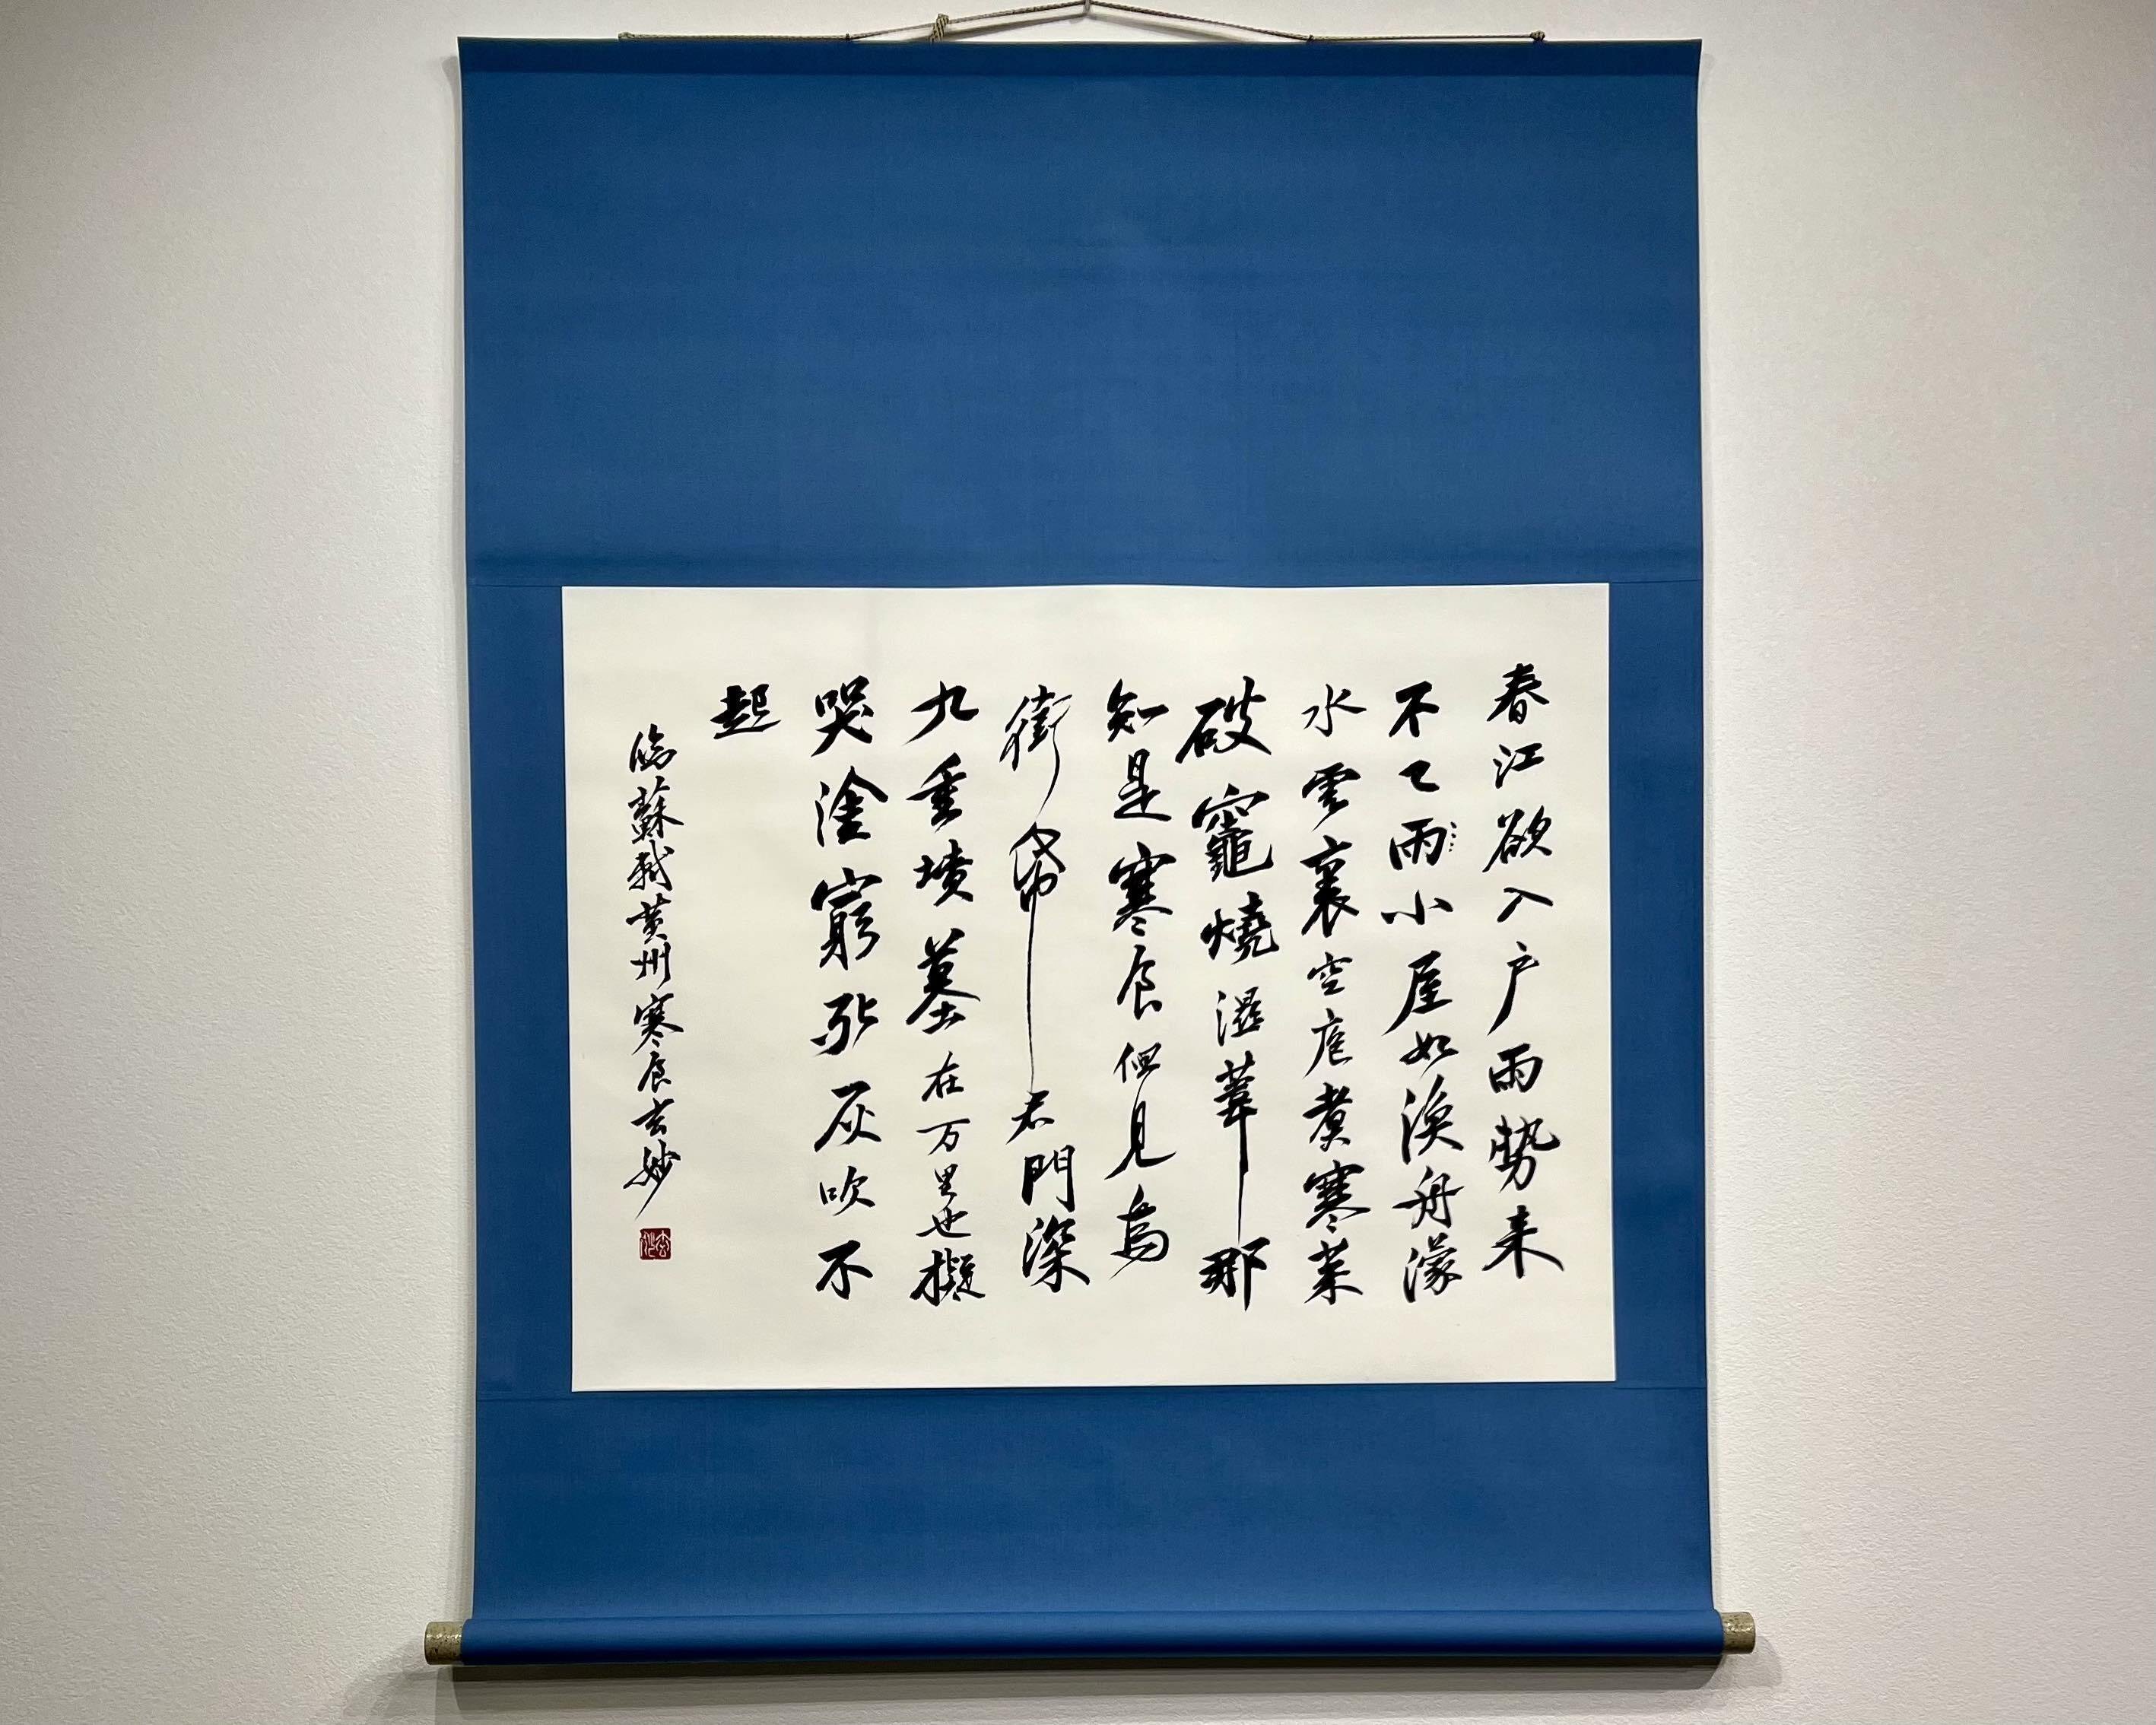 春江欲入户雨勢来
不已雨小屋如漁舟濛
水雲裏空庖煮寒菜
破竈燒濕葦那
知是寒食但見烏
銜帋君門深
九重墳墓在万里也擬
哭塗窮死灰吹不
起
臨蘇軾黄州寒食玄妙